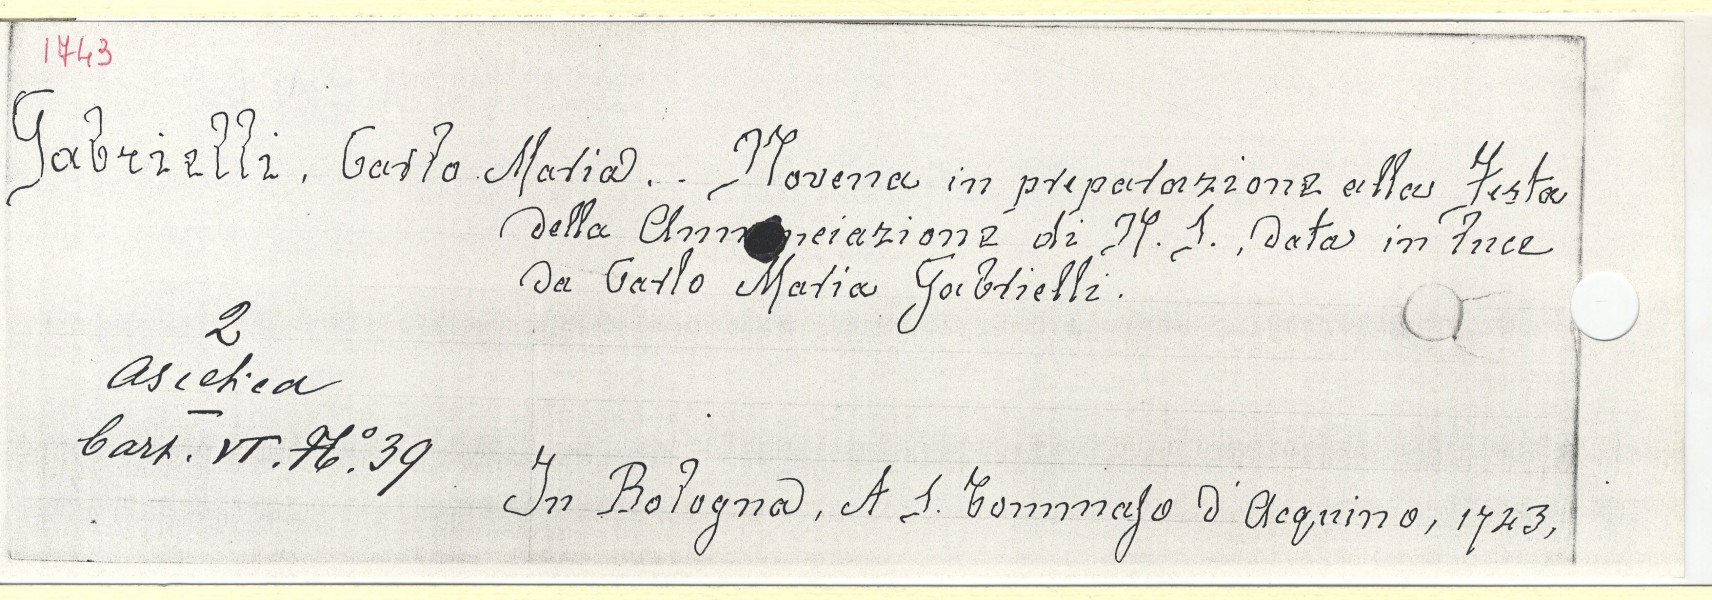 1743
Gabrielli, Carlo Maria. . Novena in preparazione alla Festa
della Annunciazione di N. S., data in luce
da Carlo Maria Gabrielli.
2
Ascetica
Cart. VI. N.º 39
In Bologna, A S. Tommaso d'Acquino, 1743,